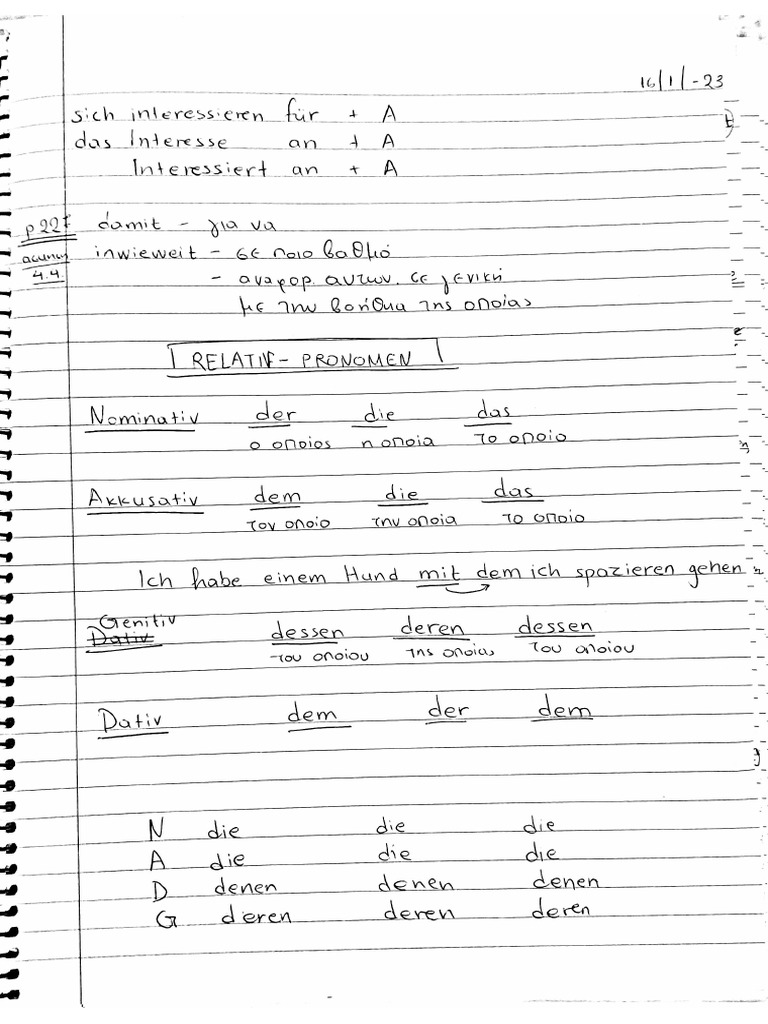 16/1/-23
sich interessieren für + A
das Interesse an + A
Interessiert an + A
p 227 damit - για να
ασκηση inwieweit - σε ποιο βαθμό
4.4. - αναφορ. αντων. σε γενική
με την βοήθια της οποίας
RELATIV - PRONOMEN
Nominativ der die das
ο οποιος η οποια το οποιο
Akkusativ dem die das
τον οποιο την οποια το οποιο
Ich habe einem Hund mit dem ich spazieren gehen
Genitiv
Dativ dessen deren dessen
του οποιου της οποιας του οποιου
Dativ dem der dem
N die die die
A die die die
D denen denen denen
G deren deren deren